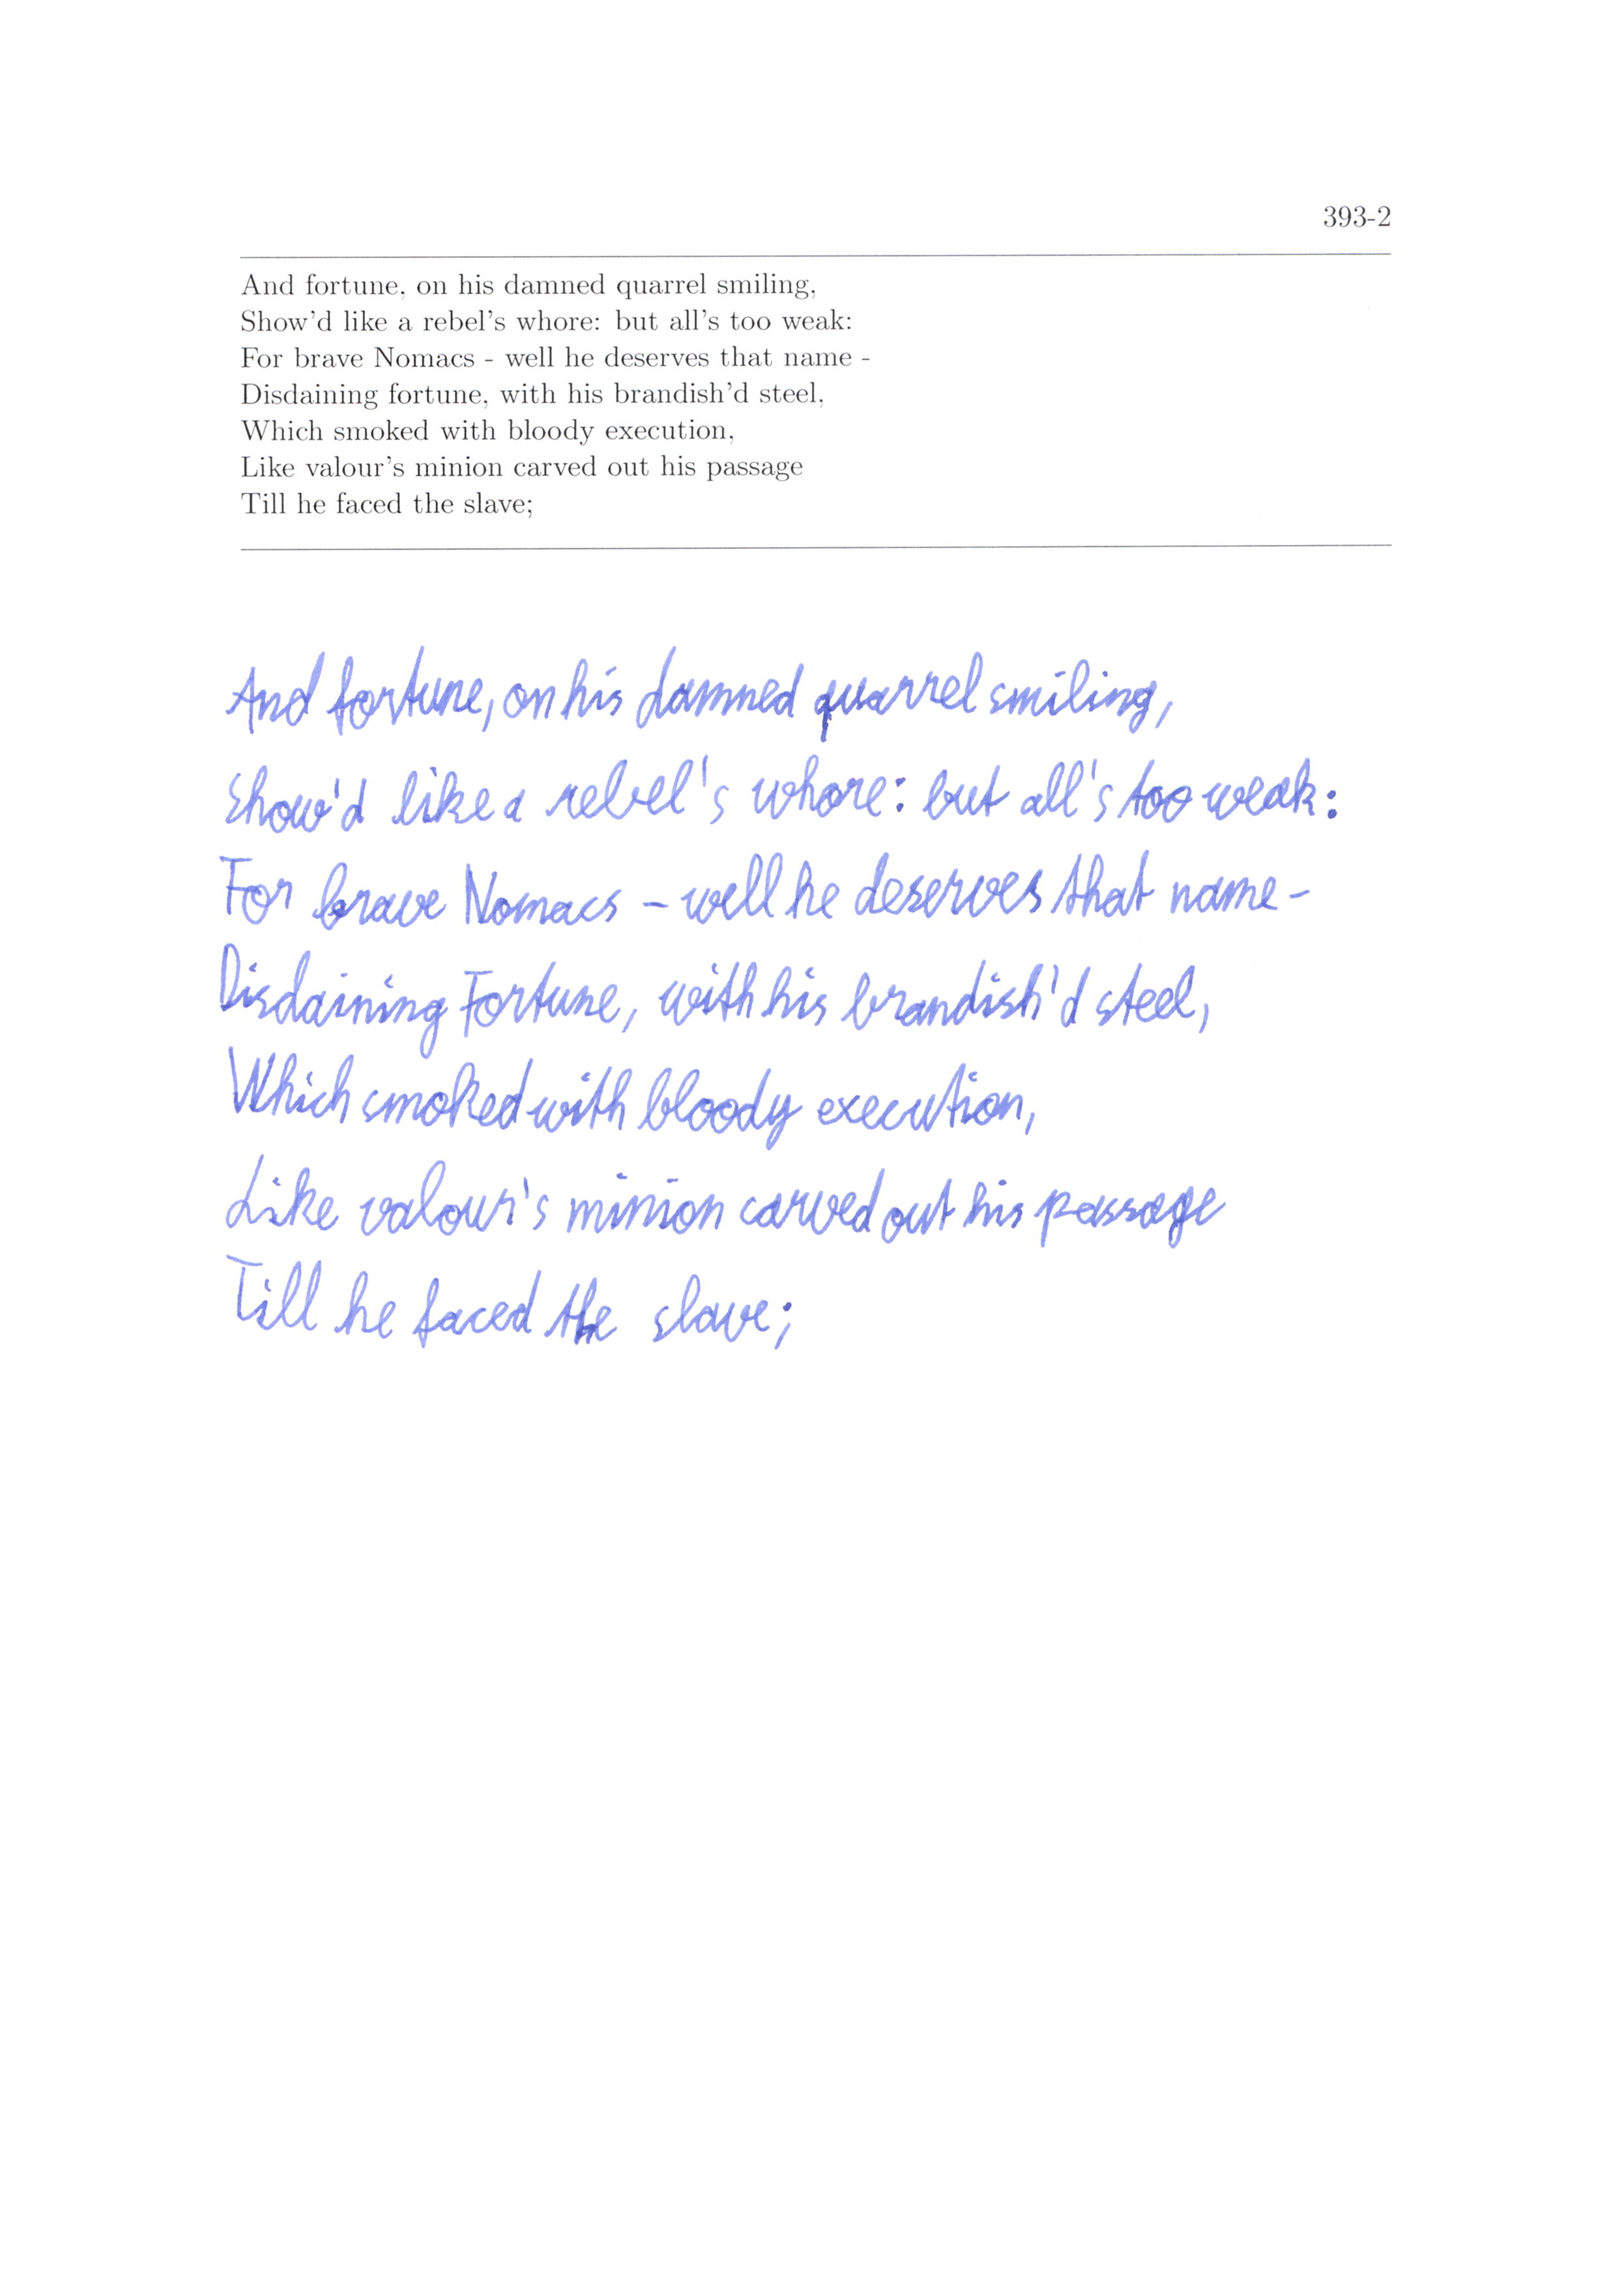 393-2
And fortune, on his damned quarrel smiling,
Show'd like a rebel's whore: but all's too weak:
For brave Nomacs - well he deserves that name -
Disdaining fortune, with his brandish'd steel,
Which smoked with bloody execution,
Like valour's minion carved out his passage
Till he faced the slave;
And fortune, on his damned quarrel smiling,
Show'd like a rebel's whore: but all's too weak:
For brave Nomacs - well he deserves that name -
Disdaining Fortune, with his brandish'd steel,
Which smoked with bloody execution,
Like valour's minion carved out his passage
Till he faced the slave;